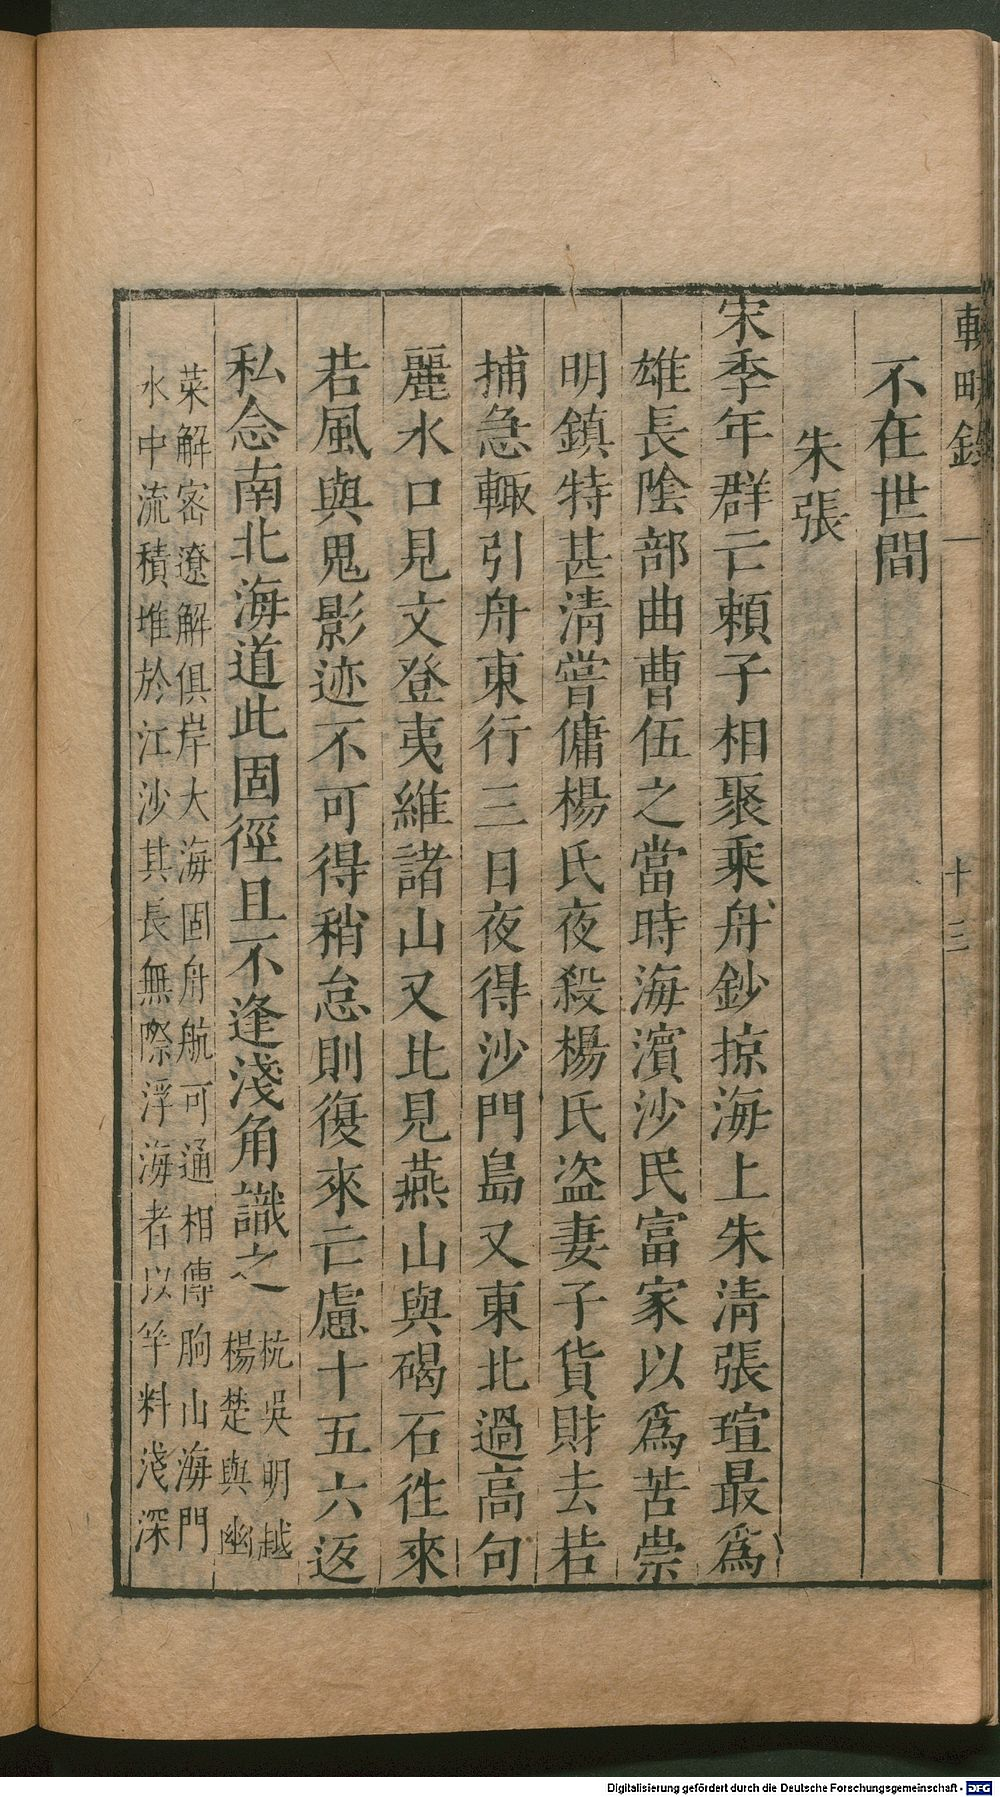 輟畊錄 一 十三
不在世間
朱張
宋季年群亡賴子相聚乘舟鈔掠海上朱清張瑄最爲
雄長陰部曲曹伍之當時海濱沙民富家以爲苦崇
明鎮特甚清嘗傭楊氏夜殺楊氏盗妻子貨財去若
捕急輙引舟東行三日夜得沙門島又東北過高句
麗水口見文登夷維諸山又北見燕山與碣石徃來
若風與鬼影迹不可得稍怠則復來亡慮十五六返
私念南北海道此固徑且不逢淺角識之
杭吳明越
楊楚與幽
萊解密遼解俱岸大海固舟航可通相傳朐山海門
水中流積堆於江沙其長無際浮海者以竿料淺深
Digitalisierung gefördert durch die Deutsche Forschungsgemeinschaft - DFG